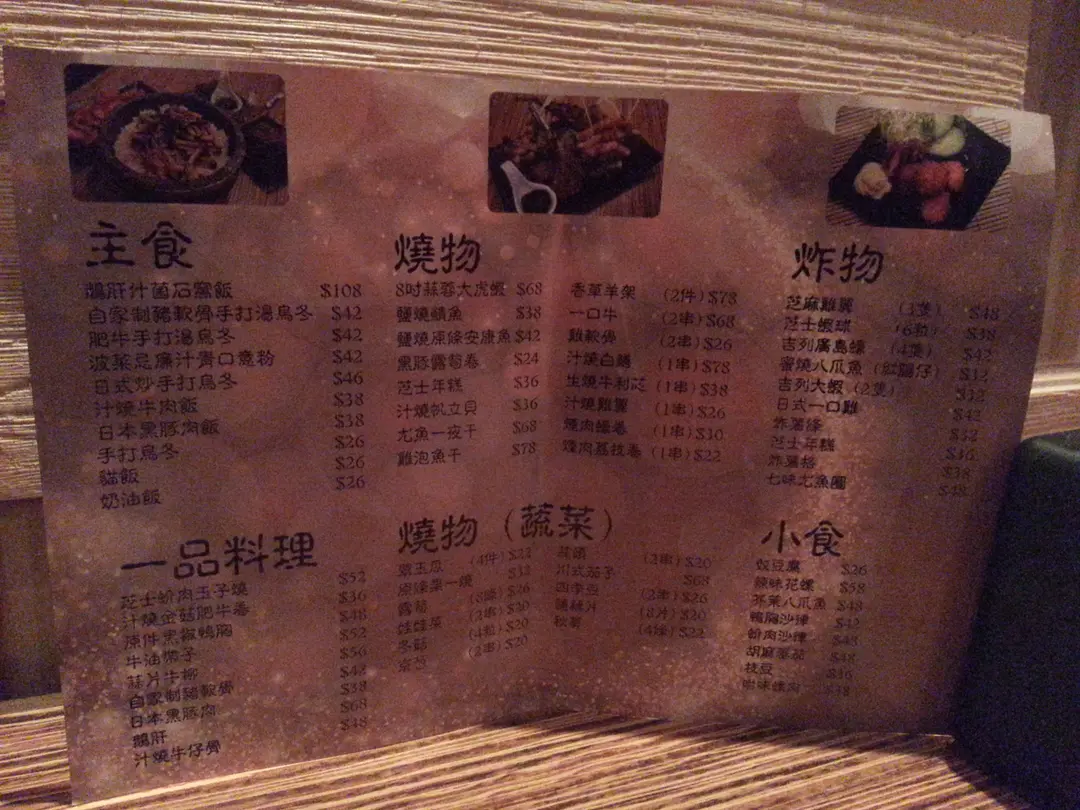 主食
鵝肝什菌石窩飯 $108
自家制豬軟骨手打湯烏冬 $42
肥牛手打湯烏冬 $42
波菜忌廉汁青口意粉 $42
日式炒手打烏冬 $46
汁燒牛肉飯 $38
日本黑豚肉飯 $38
手打烏冬 $26
貓飯 $26
奶油飯 $26
燒物
8吋蒜蓉大虎蝦 $68
鹽燒鯖魚 $38
鹽燒原條安康魚 $42
黑豚露筍卷 $24
芝士年糕 $36
汁燒帆立貝 $36
尤魚一夜干 $68
雞泡魚干 $78
香草羊架 (2件) $78
一口牛 (2串) $68
雞軟骨 (2串) $26
汁燒白鱔 (1串) $78
生燒牛利芯 (1串) $38
汁燒雞翼 (1串) $26
煙肉蠔卷 (1串) $30
煙肉荔枝卷 (1串) $22
炸物
芝麻雞翼 (3隻) $48
芝士蝦球 (6粒) $38
吉列廣島蠔 (4隻) $42
蜜燒八爪魚(紅腸仔) $32
吉列大蝦 (2隻) $32
日式一口雞 $42
炸薯條 $32
芝士年糕 $36
炸薯格 $38
七味尤魚圈 $48
一品料理
芝士蚧肉玉子燒 $52
汁燒金菇肥牛卷 $36
原件黑椒鴨胸 $48
牛油帶子 $52
蒜片牛柳 $56
自家制豬軟骨 $42
日本黑豚肉 $38
鵝肝 $68
汁燒牛仔骨 $48
燒物 (蔬菜)
翠玉瓜 (4件) $22
原條粟一燒 $32
露筍 $26
娃娃菜 (2串) $20
冬菇 (4粒) $20
京葱 (2串) $20
蒜頭 (2串) $20
川式茄子 $68
四季豆 (2串) $26
蓮藕片 (8片) $20
秋葵 (4條) $22
小食
豉豆腐 $26
辣味花螺 $58
芥茉八爪魚 $48
鴨胸沙律 $42
蚧肉沙律 $48
胡麻蕃茄 $48
枝豆 $36
$38